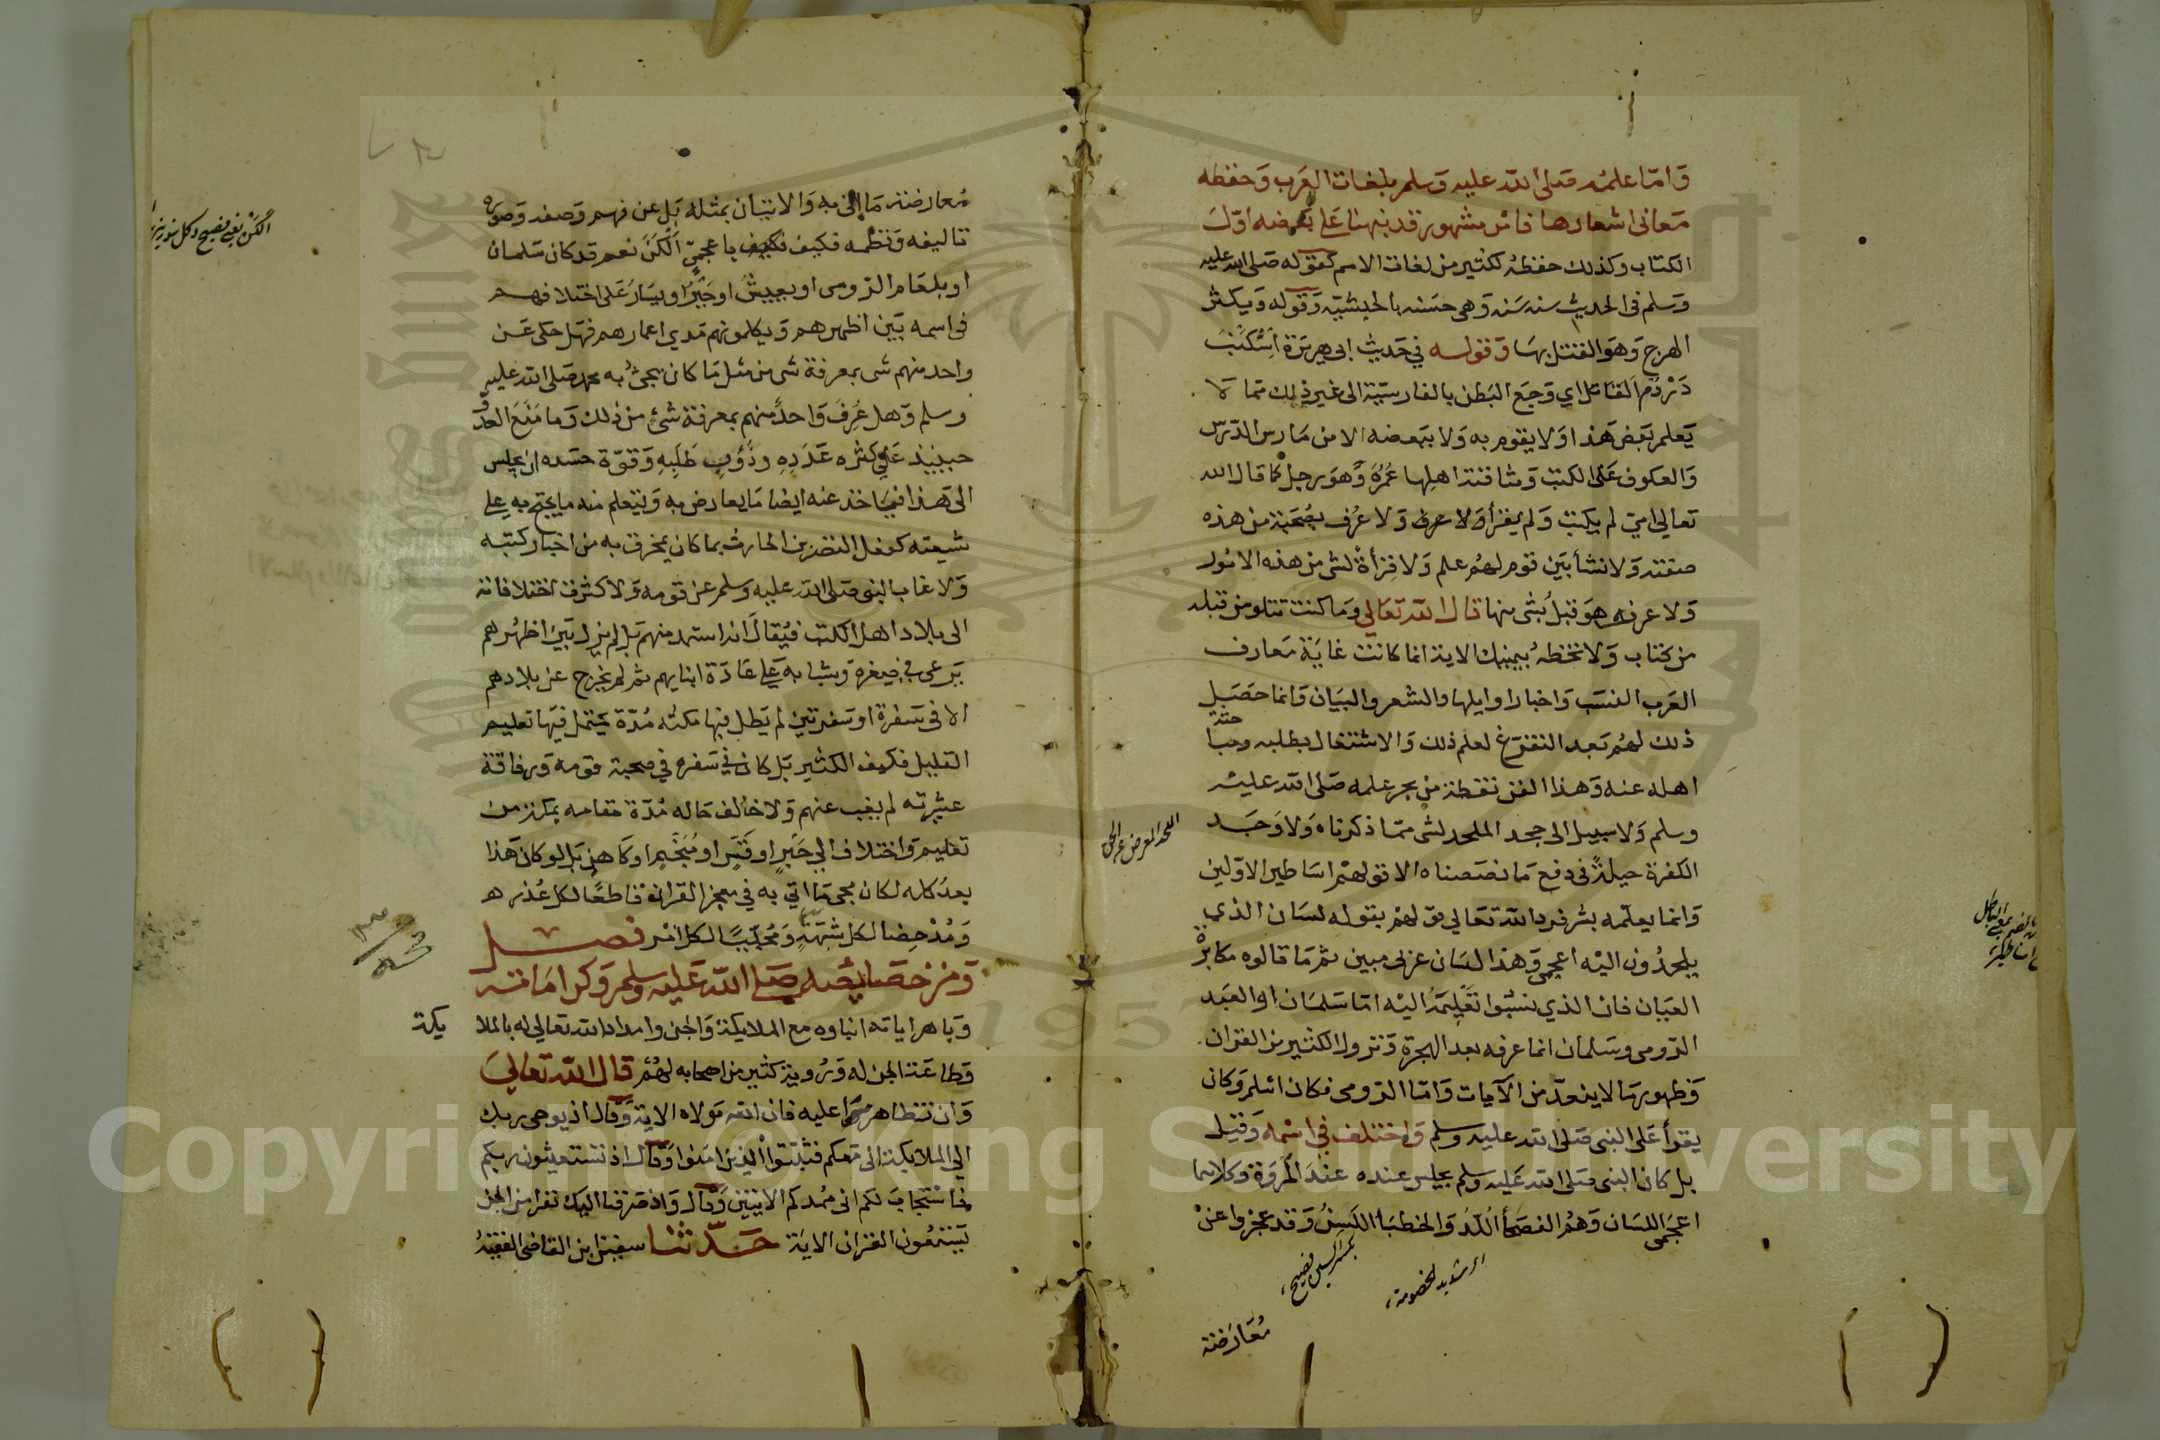 وَامّا علمُه صَلى الله عليه وَسلم بلغات العَرب وَحفظه
مَعاني اشعارها فامر مشهور قد نبهنا عَلى بعضه اوّل
الكتاب وكذلك حفظه لكثير من لغات الامم كقوله صَلى الله عليه
وَسلم في الحديث سنه سَنه وَهي حسَنه بالحبشيّه وَقوله وَيكثر
الهرج وَهوَ القتل بها وَقوله في حَديث ابي هرَيرَة اَشكَنب
دَرْدَم اَي وَجَع البَطن بالفارسيّة الى غير ذلك ممّا لا
يَعلم بَعض هَذا وَلا يقوم به وَلا ببعضه الا من مَارس الدّرس
وَالعكوف عَلى الكتب وَمثافنة اهلها عُمُرَه وَهوَ رجل كما قال الله
تعالى امّي لم يكتب وَلم يقرأ وَلا عرف وَلا عُرف بصُحْبَة من هذه
صفته وَلا نشأ بَين قوم لهم علم وَلا قِرَأة لشي من هذه الامُور
وَلا عرف هوَ قبلُ بشي منها قال الله تعَالى وَما كنت تتلو من قبله
من كتاب وَلا تخطه بيمينك الاية انما كانت غايَة مَعارف
العَرب النسَب وَاخبار اوايلها والشعر والبيَان وَانما حصَل
ذلك لهم بَعد التفرّغ لعلم ذلك وَالاشتغال بطلبه ومباحثة
اهله عنه وَهذا الفن نقطة من بحر علمه صَلى الله عليه
وسلم وَلا سبيل الى جحد الملحد لشي ممّا ذكرناه وَلا وَجَد
الكفرة حيلةً في دفع مَا نصَصناه الا قولهم اسَاطير الاوّلين
وَانما يعلّمه بشر فرد الله تعَالى قولهم بقوله لسَان الذي
يلحدُون اليْه اعجمي وَهذا لسَان عربي مبين ثم مَا قالوه مكابرة
العيَان فان الذي نسَبُوا تَعْلِيمَهُ اليْه امّا سَلمَان او العَبد
الرّومي وسَلمان انما عرفه بعد الهجرة وَنزول الكثير من القران
وَظهور مَا لا ينعدّ من الآيات وَامّا الرّومي فكان اسْلم وَكان
يقرأ عَلى النبي صَلى الله عليه وسلم وَاختلف في اسْمه وَقيل
بل كان النبي صَلى الله عَليه وسلم يجلس عنده عنْد المرْوَة وكلاهما
اعجَمي اللسَان وَهُم الفصَحَأُ اللُدّ وَالخطبَا اللُّسنُ وَقد عجزوا عنْ
الملحد المعرض عن الحق
الد شديد الخصومة،
مُعَارَضة
مُعارضة مَا اتى به وَالاتيان بمثله بَل عن فهم وَصفه وَصورة
تاليفه وَنظمه فكيف باعجميّ اَلْكَن نعم قد كان سَلمان
او بلعَام الرّومي او يعيش او جَبْر او يسَار عَلى اختلافهم
في اسمه بَين اظهرهم وَيكلمونهم مَدى اعمارهم فهَل حكي عَن
واحد منهم شي بمعرفة شي من مثل مَا كان يجئ به محمد صَلى الله عليه
وسلم وَهل عُرِفَ وَاحدٌ منهم بمعرفة شئ من ذلك وَما مَنَعَ العَدوّ
حينيذ عَلى كثرة عَدَدِهِ ودُؤبِ طَلَبِهِ وَقوّة حسَده ان يجلس
الى هَذا فيَاخذ عنه ايضا مَا يعارض به وَيتعلم منه ما يحتج به على
شيعته كفعل النضر بن الحارث بما كان يمخرق به من اخبار كتبه
وَلا غاب النبي صَلى الله عليه وسلم عن قومه وَلا كثرت اختلافاته
الى بلاد اهل الكتب فيُقالَ انه استمد منهم بَل لم يزل بَين اظهُرهم
يَرعى في صِغره وَشبابه عَلى عَادَة ابنايهم ثم لم يخرج عن بلادهم
الا في سَفرة او سَفرتين لم يَطل فيها مكثه مُدّة يحتمل فيها تعليم
القليل فكيف الكثير بَل كان في سَفره في صحبة قومه وَرفاقة
عشيرته لم يغب عنهم وَلا خالف حَاله مُدّة مقامه بمكة من
تعليم وَاختلاف الى حَبرٍ او قَسٍ او مُنَجّم او كَاهن بَل لو كان هَذا
بعدُ كله لكان مجي مَا اتي به في معجز القران قاطعًا لكل عُذر
وَمُدْحِضا لكل شبَهَةٍ وَمُجَلّيًا لكل امْر فصل
وَمن خصَايصه صَلى الله عَليه وسَلم وَكرامَاته
وَباهر اياته انباوه مع الملايكة وَالجن وامداد الله تعالى له بالملا
يكة
وَطاعَة الجن له وَرُوية كثير من اصحابه لهم قال الله تعالى
وَان تظاهرا عليه فان الله مَولاه الاية وَقال اذ يوحي ربك
الى الملايكة اني مَعكم فثبّتوا الذين امَنوا وَقال اذ تستغيثون ربكم
فاسْتجابَ لكم اني مُمدكم الايتين وَقال وَاذ صَرفنا اليك نفرا من الجن
يَستمعُون القران الاية حَدّثنا سفين ابن القاضي الفقيه